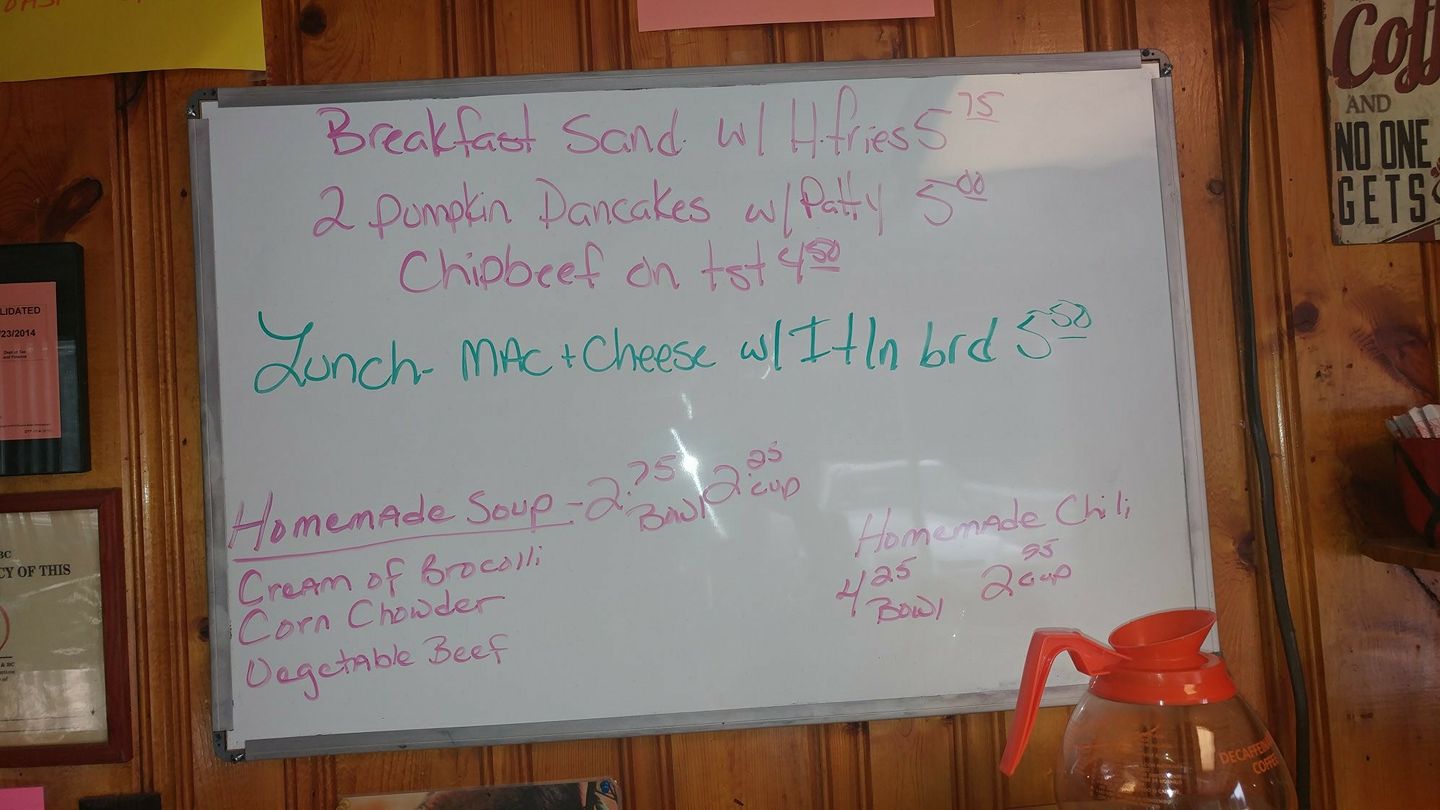 Breakfast Sand. w/ H.fries 5 75
2 Pumpkin Pancakes w/ Patty 5 00
Chipbeef on tst 4 50
Lunch- MAC + Cheese w/ Itln brd 5 50
Homemade Soup - 2.75 Bowl 2.25 cup
Cream of Brocolli
Corn Chowder
Vegetable Beef
Homemade Chili
4 25 Bowl 2 95 cup
LIDATED
/23/2014
Dept of Tax
and Finance
BC
CY OF THIS
Coff
AND
NO ONE
GETS
DECAFFEIN
COFFE